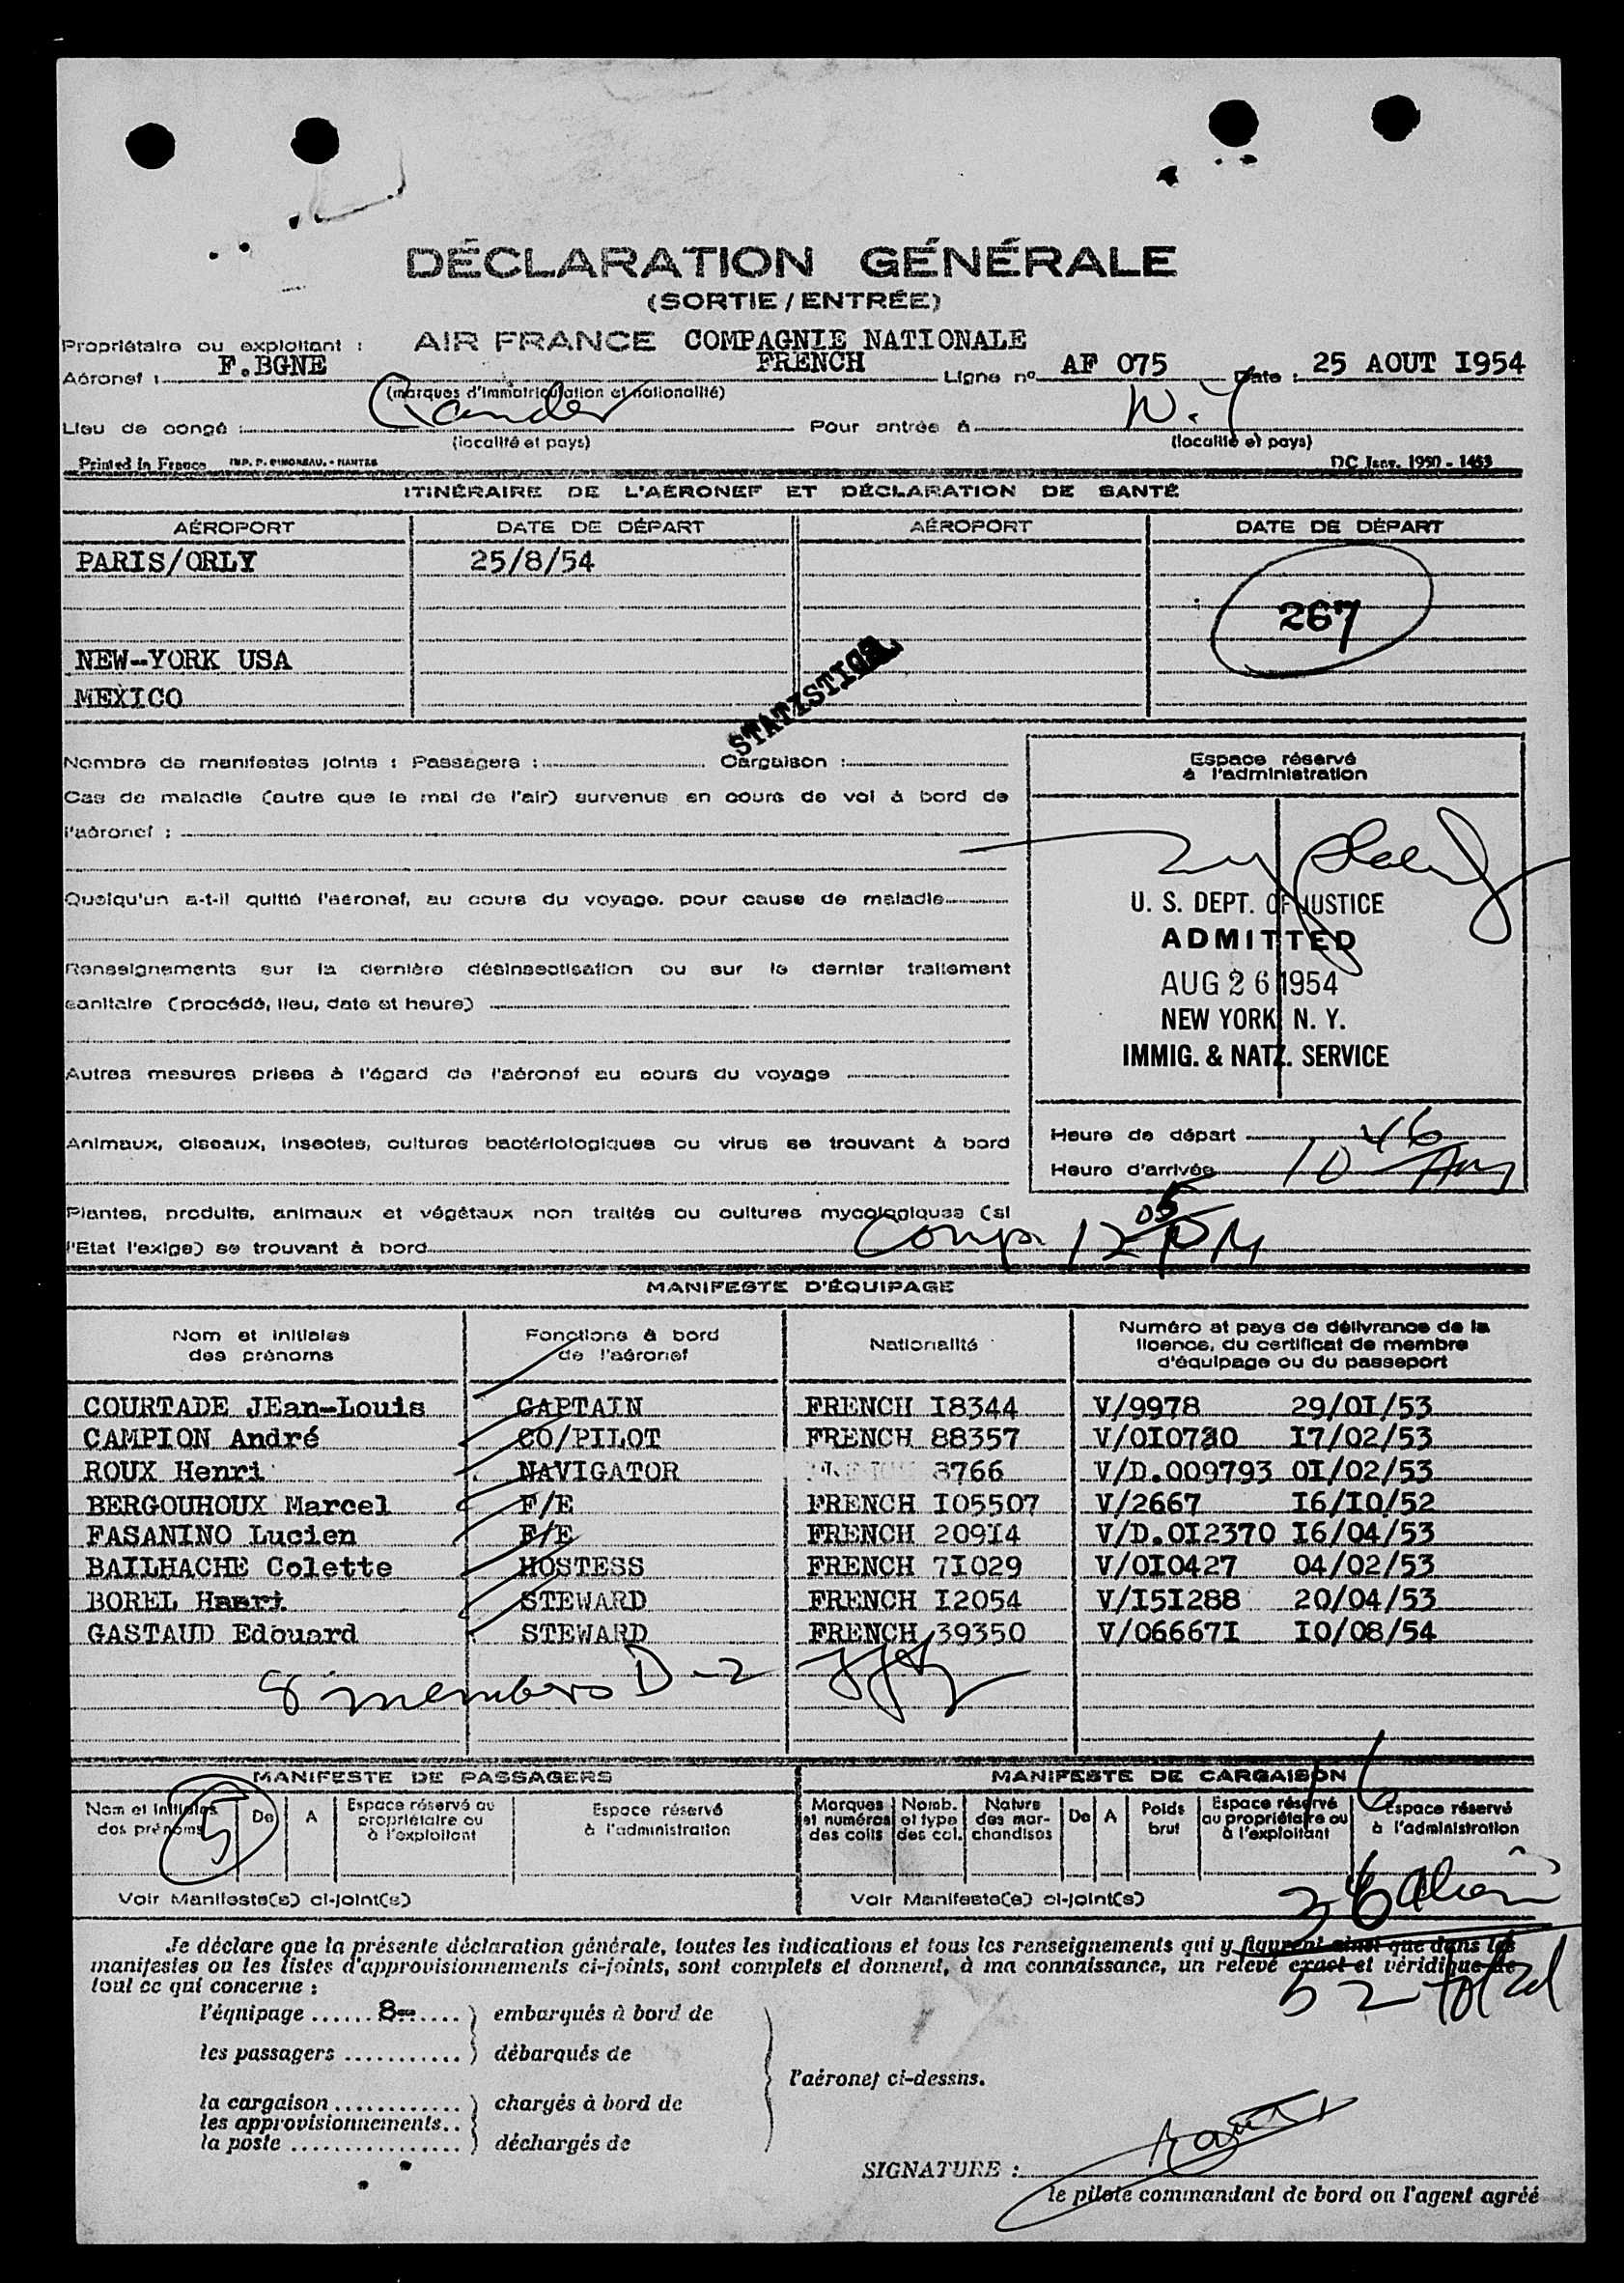 DÉCLARATION GÉNÉRALE
(SORTIE / ENTRÉE)
Propriétaire ou exploitant : AIR FRANCE COMPAGNIE NATIONALE
Aéronef : F.BGNE FRENCH Ligne nº AF 075 Date : 25 AOUT I954
(marques d'immatriculation et nationalité)
Lieu de congé : Gander Pour entrée à N.Y
(localité et pays) (localité et pays)
Printed in France IMP. P. RIMOREAU. - NANTES DC Janv. 1950 - 1453
ITINÉRAIRE DE L'AÉRONEF ET DÉCLARATION DE SANTÉ
AÉROPORT DATE DE DÉPART AÉROPORT DATE DE DÉPART
PARIS/ORLY 25/8/54
267
NEW-YORK USA
MEXICO
STATISTICS
Nombre de manifestes joints : Passagers : Cargaison :
Espace réservé
à l'administration
Cas de maladie (autre que le mal de l'air) survenus en cours de vol à bord de
l'aéronef :
Quelqu'un a-t-il quitté l'aéronef, au cours du voyage, pour cause de maladie
U. S. DEPT. OF JUSTICE
ADMITTED
AUG 26 1954
NEW YORK, N. Y.
IMMIG. & NATZ. SERVICE
Renseignements sur la dernière désinsectisation ou sur le dernier traitement
sanitaire (procédé, lieu, date et heure)
Autres mesures prises à l'égard de l'aéronef au cours du voyage
Animaux, oiseaux, insectes, cultures bactériologiques ou virus se trouvant à bord
Heure de départ
Heure d'arrivée 10 46 AM
Plantes, produits, animaux et végétaux non traités ou cultures mycologiques (si
l'Etat l'exige) se trouvant à bord Comp 12 05 PM
MANIFESTE D'ÉQUIPAGE
Nom et initiales
des prénoms
Fonctions à bord
de l'aéronef
Nationalité
Numéro et pays de délivrance de la
licence, du certificat de membre
d'équipage ou du passeport
COURTADE JEan-Louis CAPTAIN FRENCH I8344 V/9978 29/0I/53
CAMPION André CO/PILOT FRENCH 88357 V/0I0730 I7/02/53
ROUX Henri NAVIGATOR 8766 V/D.009793 0I/02/53
BERGOUHOUX Marcel F/E FRENCH I05507 V/2667 I6/I0/52
FASANINO Lucien F/E FRENCH 209I4 V/D.0I2370 I6/04/53
BAILHACHE Colette HOSTESS FRENCH 7I029 V/0I0427 04/02/53
BOREL Henri STEWARD FRENCH I2054 V/I5I288 20/04/53
GASTAUD Edouard STEWARD FRENCH 39350 V/06667I I0/08/54
8 members D-2
MANIFESTE DE PASSAGERS MANIFESTE DE CARGAISON
Nom et initiales
des prénoms
De A
Espace réservé au
propriétaire ou
à l'exploitant
Espace réservé
à l'administration
Marques
et numéros
des colis
Nomb.
et type
des col.
Nature
des mar-
chandises
De A
Poids
brut
Espace réservé
au propriétaire ou
à l'exploitant
Espace réservé
à l'administration
5
Voir Manifeste(s) ci-joint(s) Voir Manifeste(s) ci-joint(s)
36 Alien
52 total
Je déclare que la présente déclaration générale, toutes les indications et tous les renseignements qui y figurent ainsi que dans les
manifestes ou les listes d'approvisionnements ci-joints, sont complets et donnent, à ma connaissance, un relevé exact et véridique de
tout ce qui concerne :
l'équipage ......8-..... ) embarqués à bord de
les passagers ........... ) débarqués de
l'aéronef ci-dessus.
la cargaison ............ ) chargés à bord de
les approvisionnements..
la poste ................ ) déchargés de
SIGNATURE :
le pilote commandant de bord ou l'agent agréé